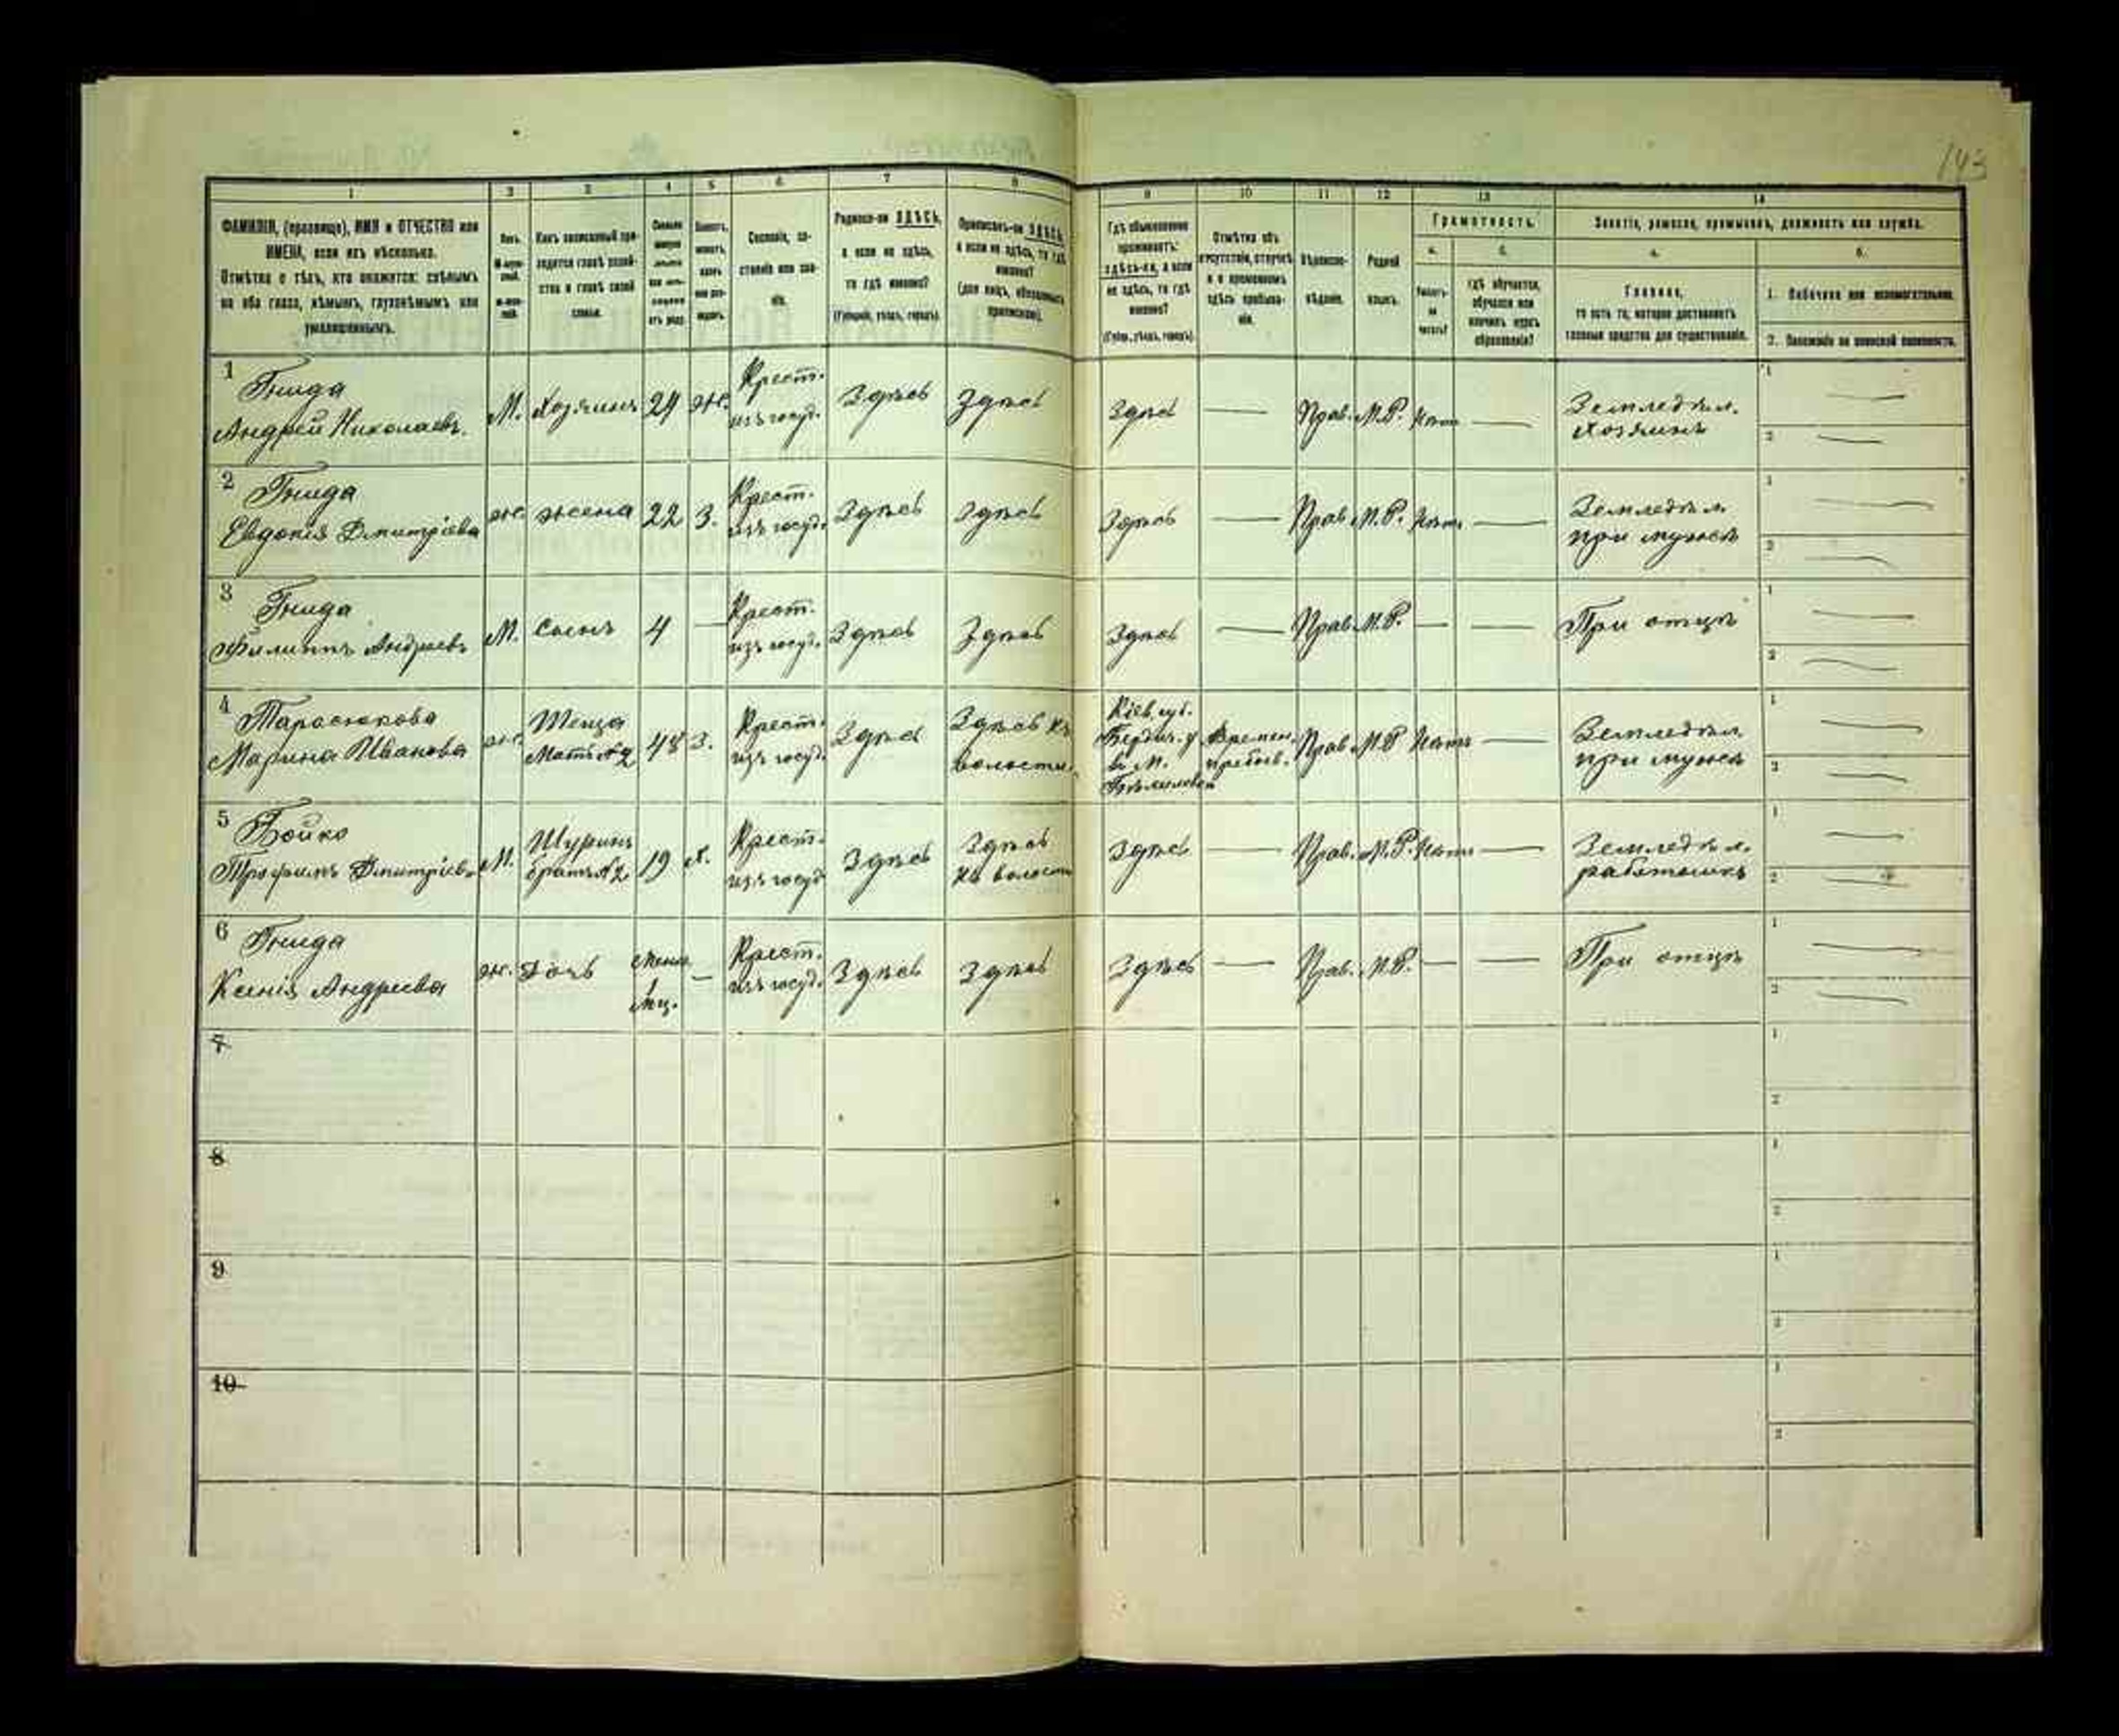 143
1 2 3 4 5 6 7 8 9 10 11 12 13 14
ФАМИЛІЯ, (прозвище), ИМЯ и ОТЧЕСТВО или
ИМЕНА, если ихъ нѣсколько.
Отмѣтка о тѣхъ, кто окажется: слѣпымъ
на оба глаза, нѣмымъ, глухонѣмымъ или
умалишеннымъ.
Полъ.
Какъ записанный при-
ходится главѣ хозяй-
ства и главѣ своей
семьи.
Сословіе, со-
стояніе или зва-
ніе.
Родился-ли ЗДѢСЬ,
а если не здѣсь,
то гдѣ именно?
(Губернія, уѣздъ, городъ).
Приписанъ-ли ЗДѢСЬ,
а если не здѣсь, то гдѣ
именно?
(для лицъ, обязанныхъ
припискою).
Гдѣ обыкновенно
проживаетъ:
здѣсь-ли, а если
не здѣсь, то гдѣ
именно?
(Губер., уѣздъ, городъ).
Отмѣтка объ
отсутствіи, отлучкѣ
и о временномъ
здѣсь пребыва-
ніи.
Вѣроиспо-
вѣданіе.
Родной
языкъ.
Грамотность.
а. б.
Умѣетъ-
ли
читать?
гдѣ обучается,
обучался или
кончилъ курсъ
образованія?
Занятіе, ремесло, промыселъ, должность или служба.
а. б.
Главное,
то есть то, которое доставляетъ
главныя средства для существованія.
1. Побочное или вспомогательное.
2. Положеніе по воинской повинности.
1 Гнида
Андрей Николаевъ.
М. Хозяинъ 24 ж.
Крест.
изъ госуд.
Здѣсь Здѣсь Здѣсь — Прав. М.Р. Нѣтъ —
Земледѣл.
Хозяинъ
1 —
2 —
2 Гнида
Евдокія Дмитріева
ж. жена 22 З.
Крест.
изъ госуд.
Здѣсь Здѣсь Здѣсь — Прав. М.Р. Нѣтъ —
Земледѣл.
при мужѣ
1 —
2 —
3 Гнида
Филиппъ Андреевъ
М. Сынъ 4 —
Крест.
изъ госуд.
Здѣсь Здѣсь Здѣсь — Прав. М.Р. — —
При отцѣ
1 —
2 —
4 Тарасюкова
Марина Иванова
ж.
Теща
Мать №2
48 З.
Крест.
изъ госуд.
Здѣсь
Здѣсь къ
волости.
Кіев. губ.
Бердич. у
в М.
Времен.
пребыв.
Прав. М.Р. Нѣтъ —
Земледѣл.
при мужѣ
1 —
2 —
5 Бойко
Трофимъ Дмитріевъ
М.
Шуринъ
братъ №2
19 Х.
Крест.
изъ госуд.
Здѣсь
Здѣсь
къ волости
Здѣсь — Прав. М.Р. Нѣтъ —
Земледѣл.
работникъ
1 —
2 —
6 Гнида
Ксенія Андреева
ж. Дочь
менѣе
1 мц.
—
Крест.
изъ госуд.
Здѣсь Здѣсь Здѣсь — Прав. М.Р. — —
При отцѣ
1 —
2 —
7 1
2
8 1
2
9 1
2
10 1
2